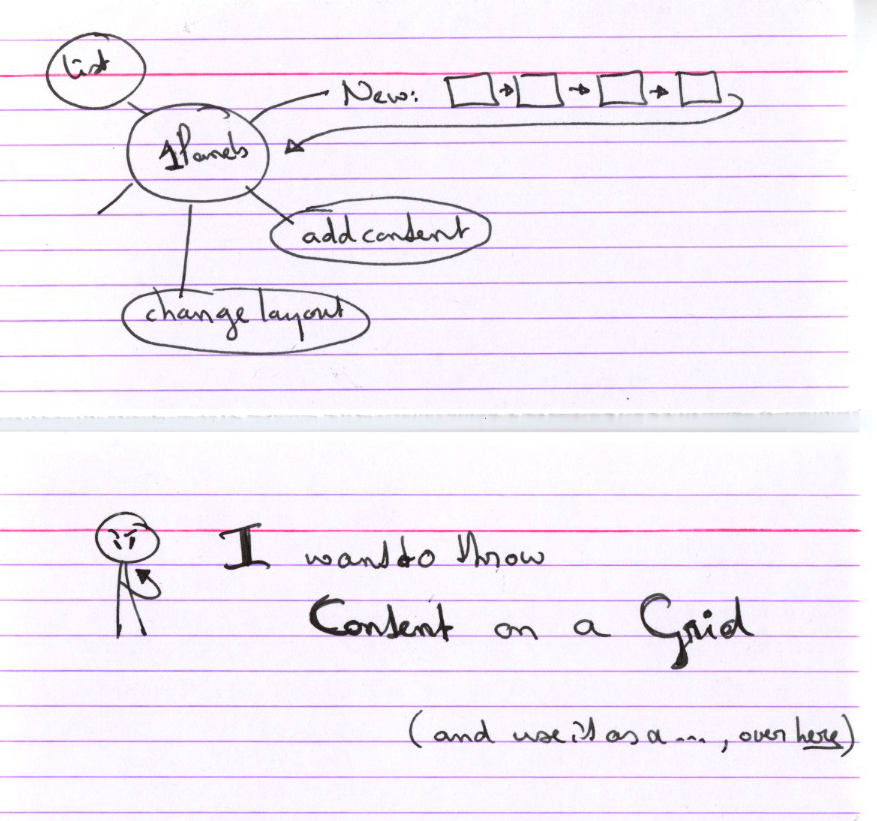 list
New:
1 Panels
add content
change layout
I want to throw
Content on a Grid
(and use it as a ..., over here)